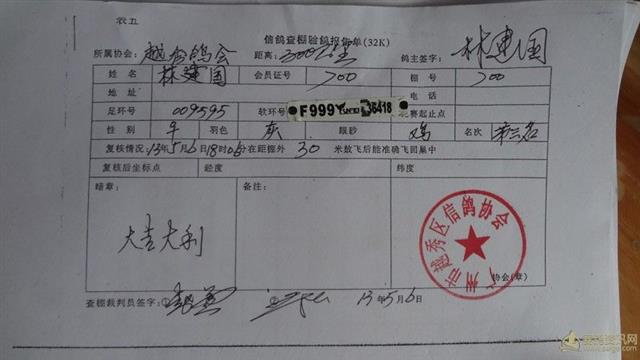 表五
信鸽查棚验鸽报告单(32K)
所属协会: 越秀鸽会 距离: 300公里 鸽主签字: 林建国
姓名 林建国 会员证号 700 棚号 700
地址 电话
足环号 009595 软环号 F999 36418 竞赛起止点
性别 羽色 灰 眼砂 鸡 名次 第三名
复核情况: 13年5月6日18时06分在距棚外 30 米数飞后能准确飞回巢中
复核后坐标点 经度 纬度
暗章: 备注:
大吉大利
广州市越秀区信鸽协会
协会(章)
查棚裁判员签字: 13年5月6日